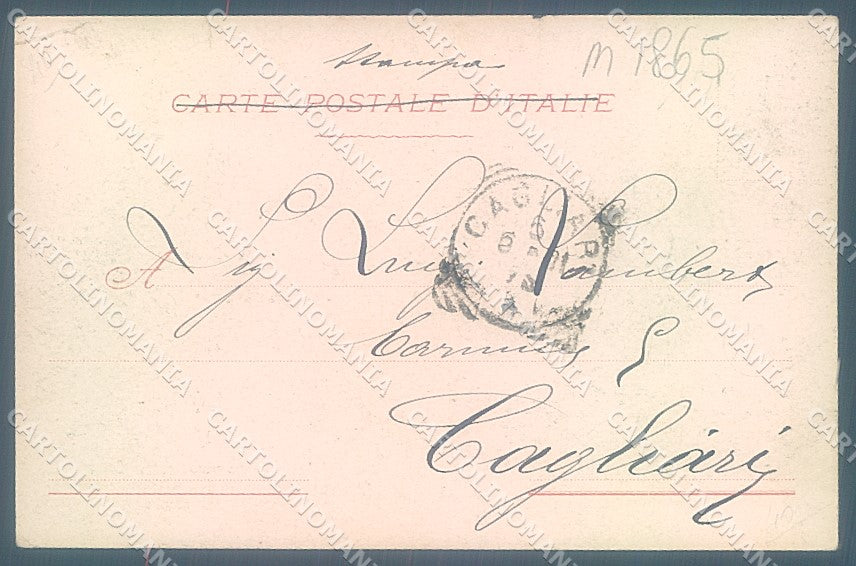 Stampa
M 1865
CARTE POSTALE D'ITALIE
A Sig Luigi
CAGLIARI
Cagliari
CARTOLINOMANIA